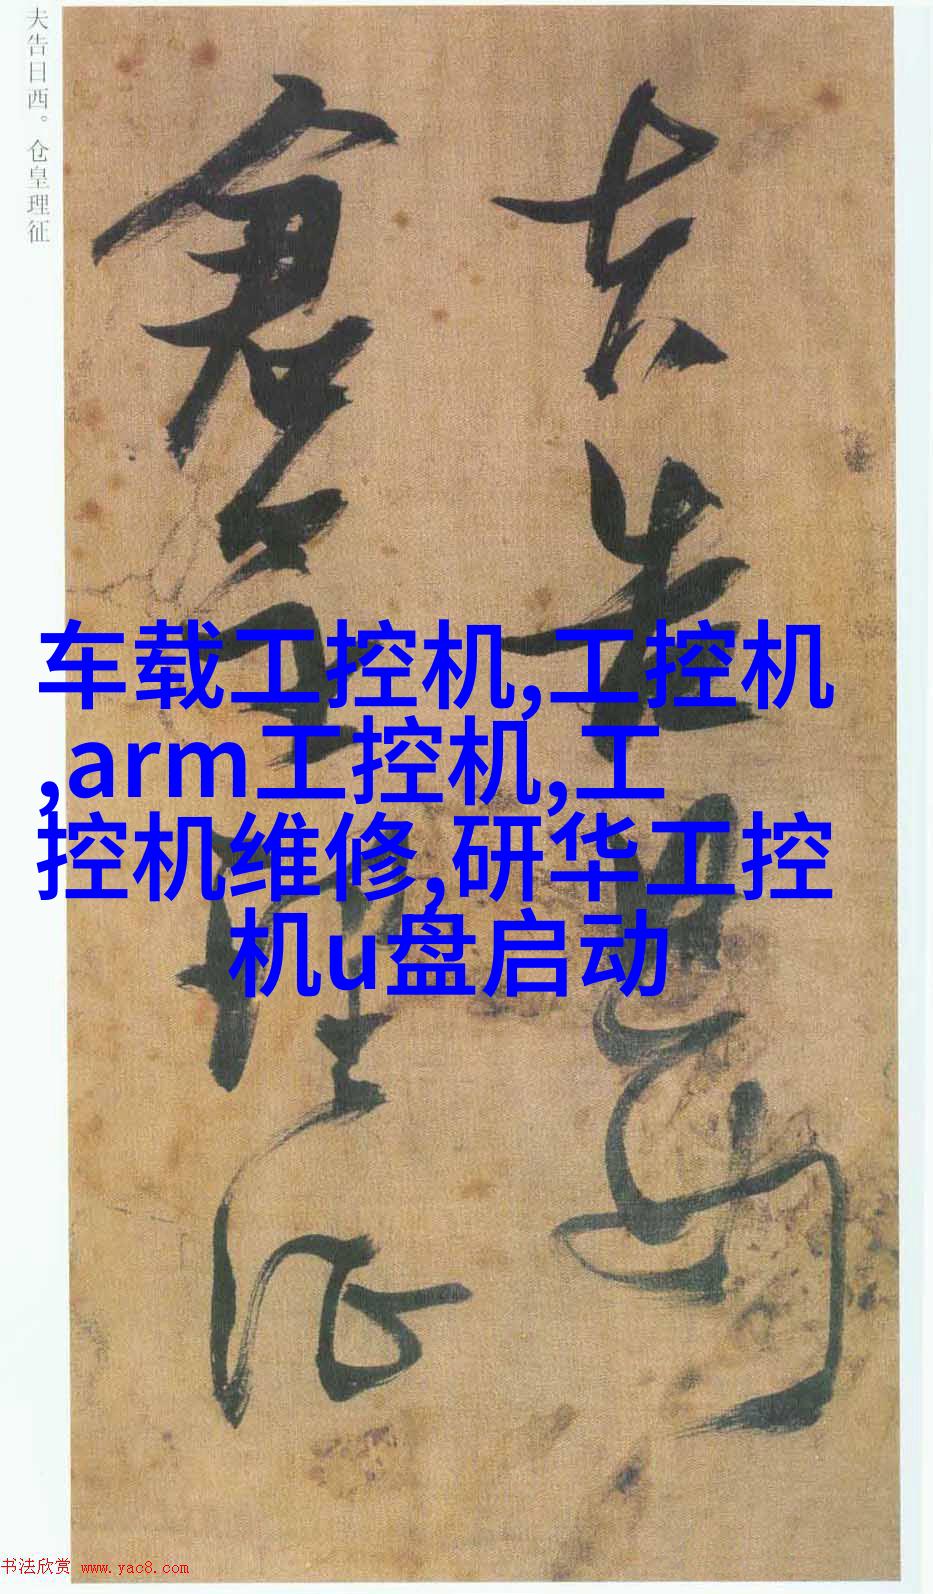 夫告日西。仓皇理征
夫告日西
仓皇理征
车载工控机,工控机
,arm工控机,工
控机维修,研华工控
机u盘启动
书法欣赏 www.yac8.com